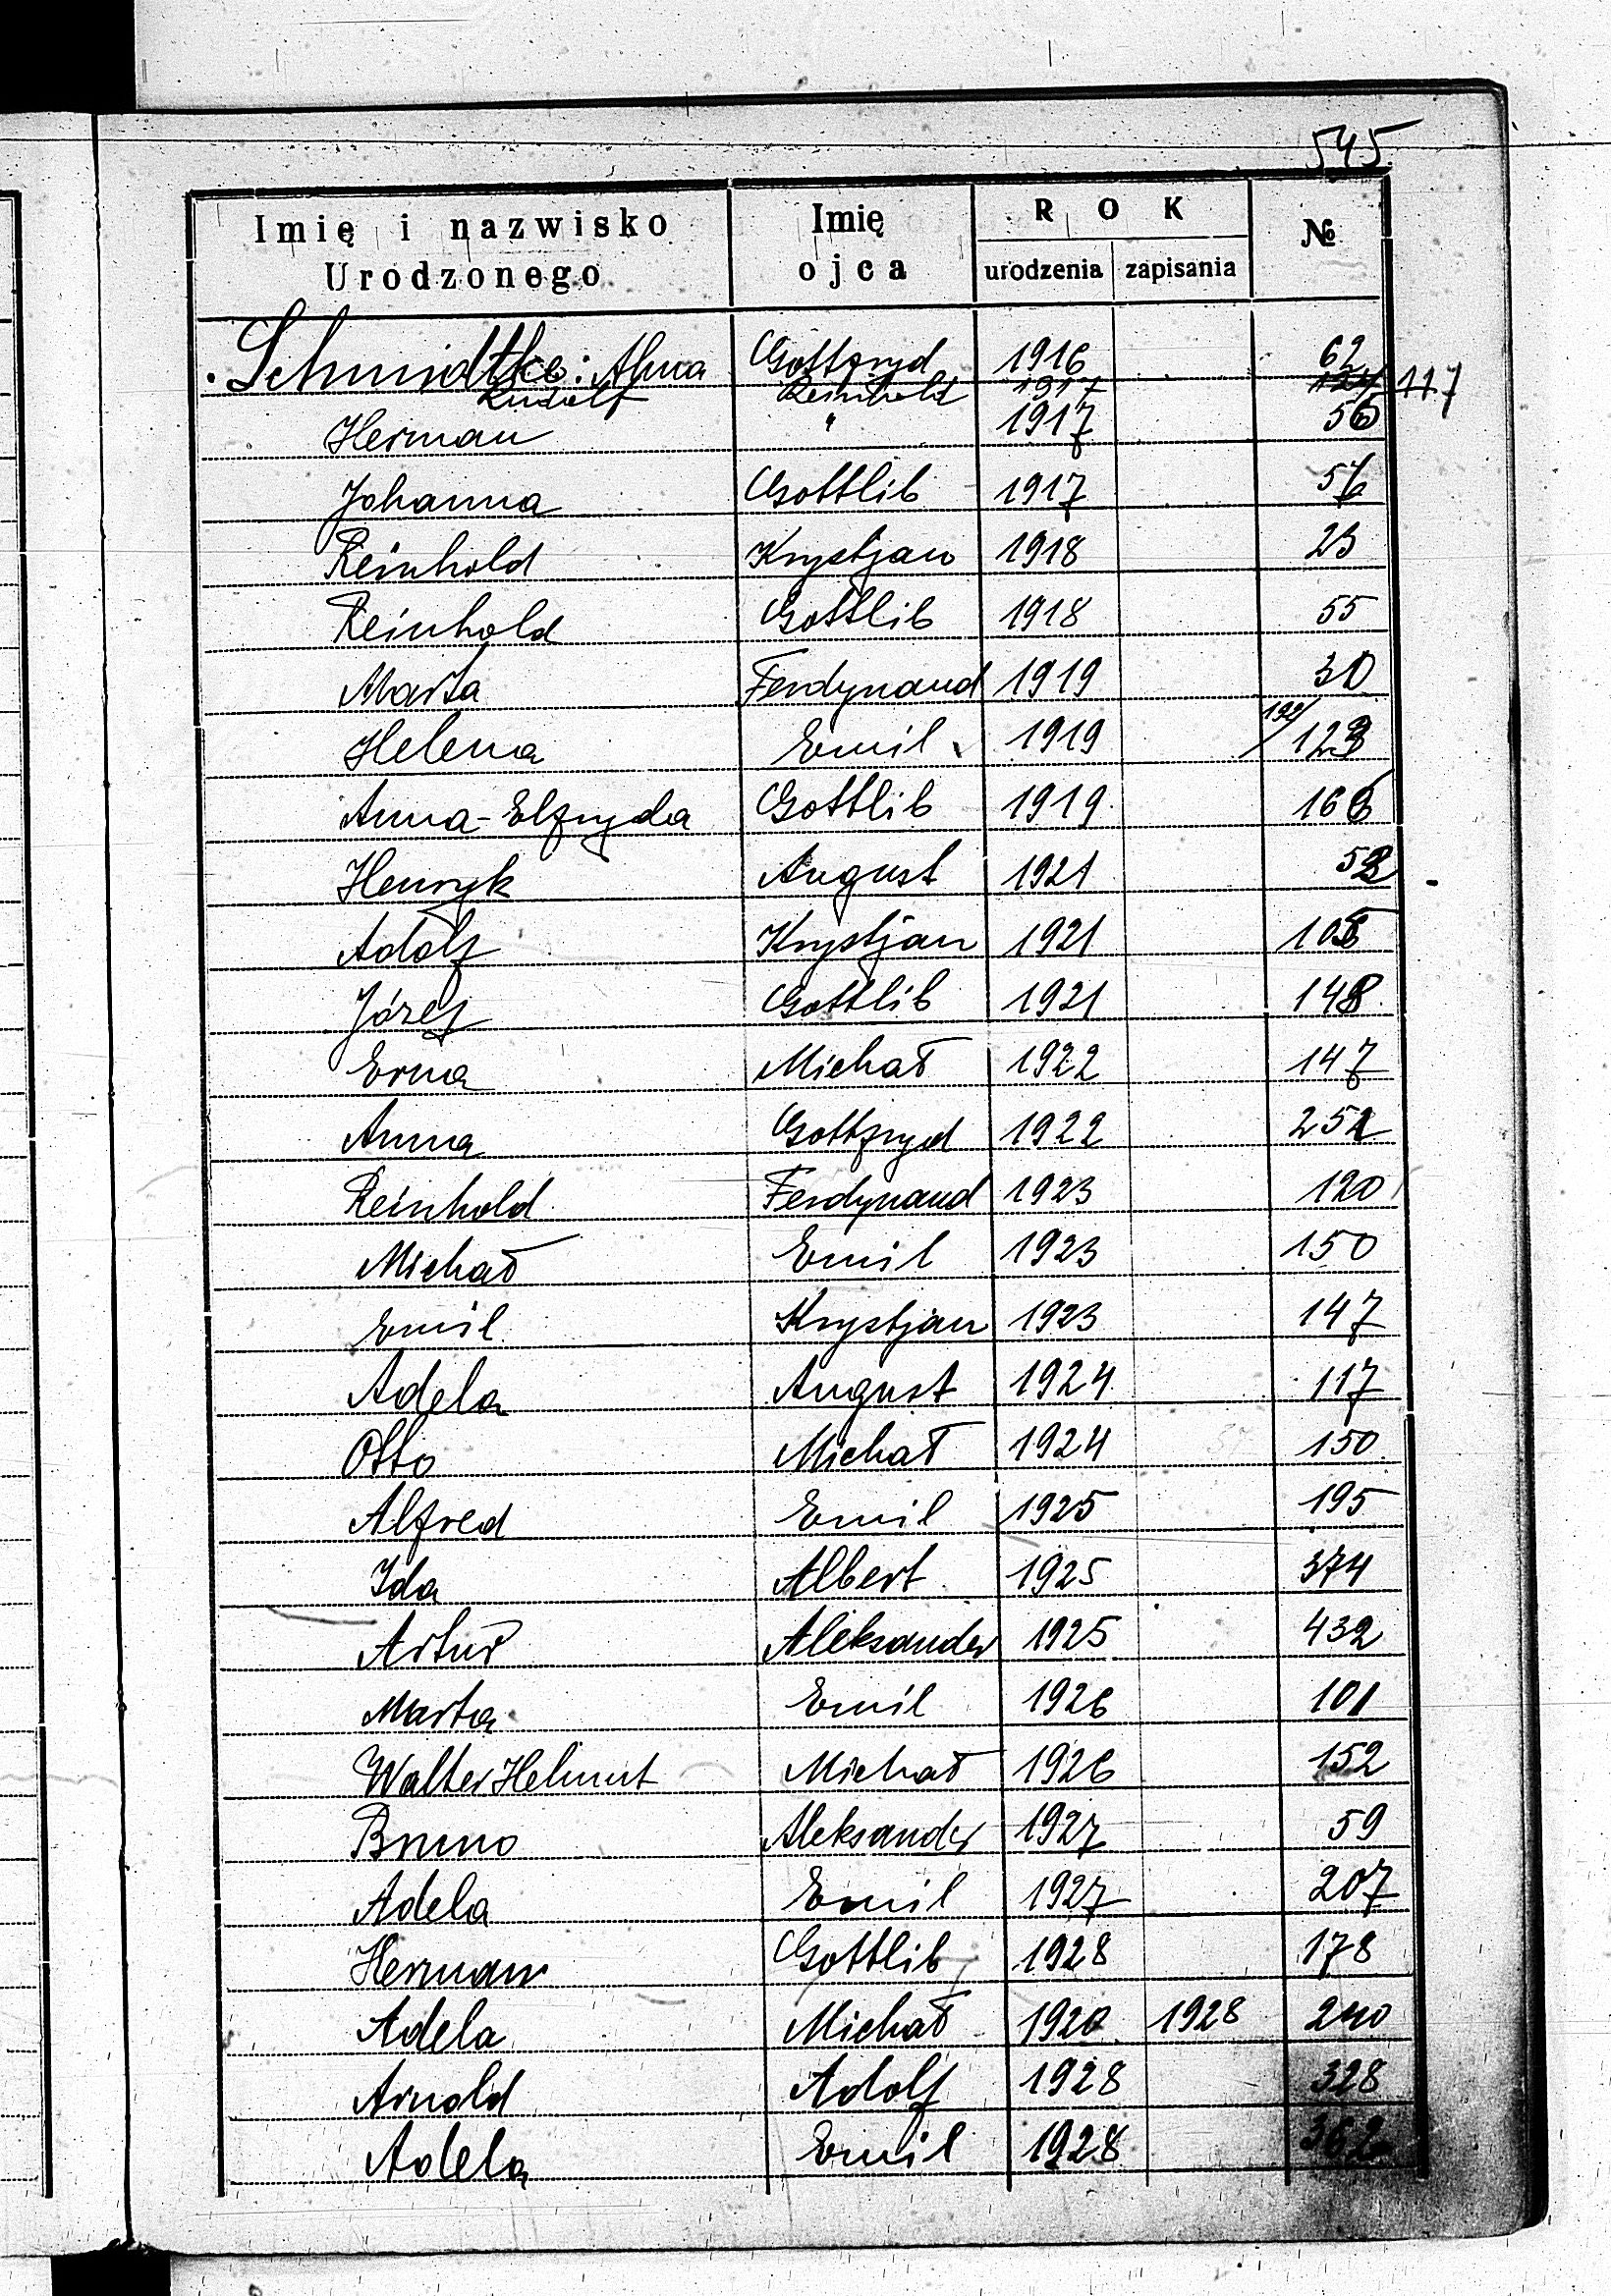 545
Imię i nazwisko Urodzonego Imię ojca ROK urodzenia zapisania №
Schmidtke: Alma Gottfryd 1916 62
Rudolf Reinhold 1917 117
Herman " 1917 56
Johanna Gottlib 1917 57
Reinhold Krystjan 1918 23
Reinhold Gottlib 1918 55
Marta Ferdynand 1919 30
Helena Emil 1919 123
Anna-Elfryda Gottlib 1919 166
Henryk August 1921 52
Adolf Krystjan 1921 105
Józef Gottlib 1921 148
Erna Michał 1922 147
Anna Gottfryd 1922 252
Reinhold Ferdynand 1923 120
Michał Emil 1923 150
Emil Krystjan 1923 147
Adela August 1924 117
Otto Michał 1924 150
Alfred Emil 1925 195
Ida Albert 1925 374
Artur Aleksander 1925 432
Marta Emil 1926 101
Walter Helmut Michał 1926 152
Bruno Aleksander 1927 59
Adela Emil 1927 207
Herman Gottlib 1928 178
Adela Michał 1920 1928 240
Arnold Adolf 1928 328
Adela Emil 1928 362